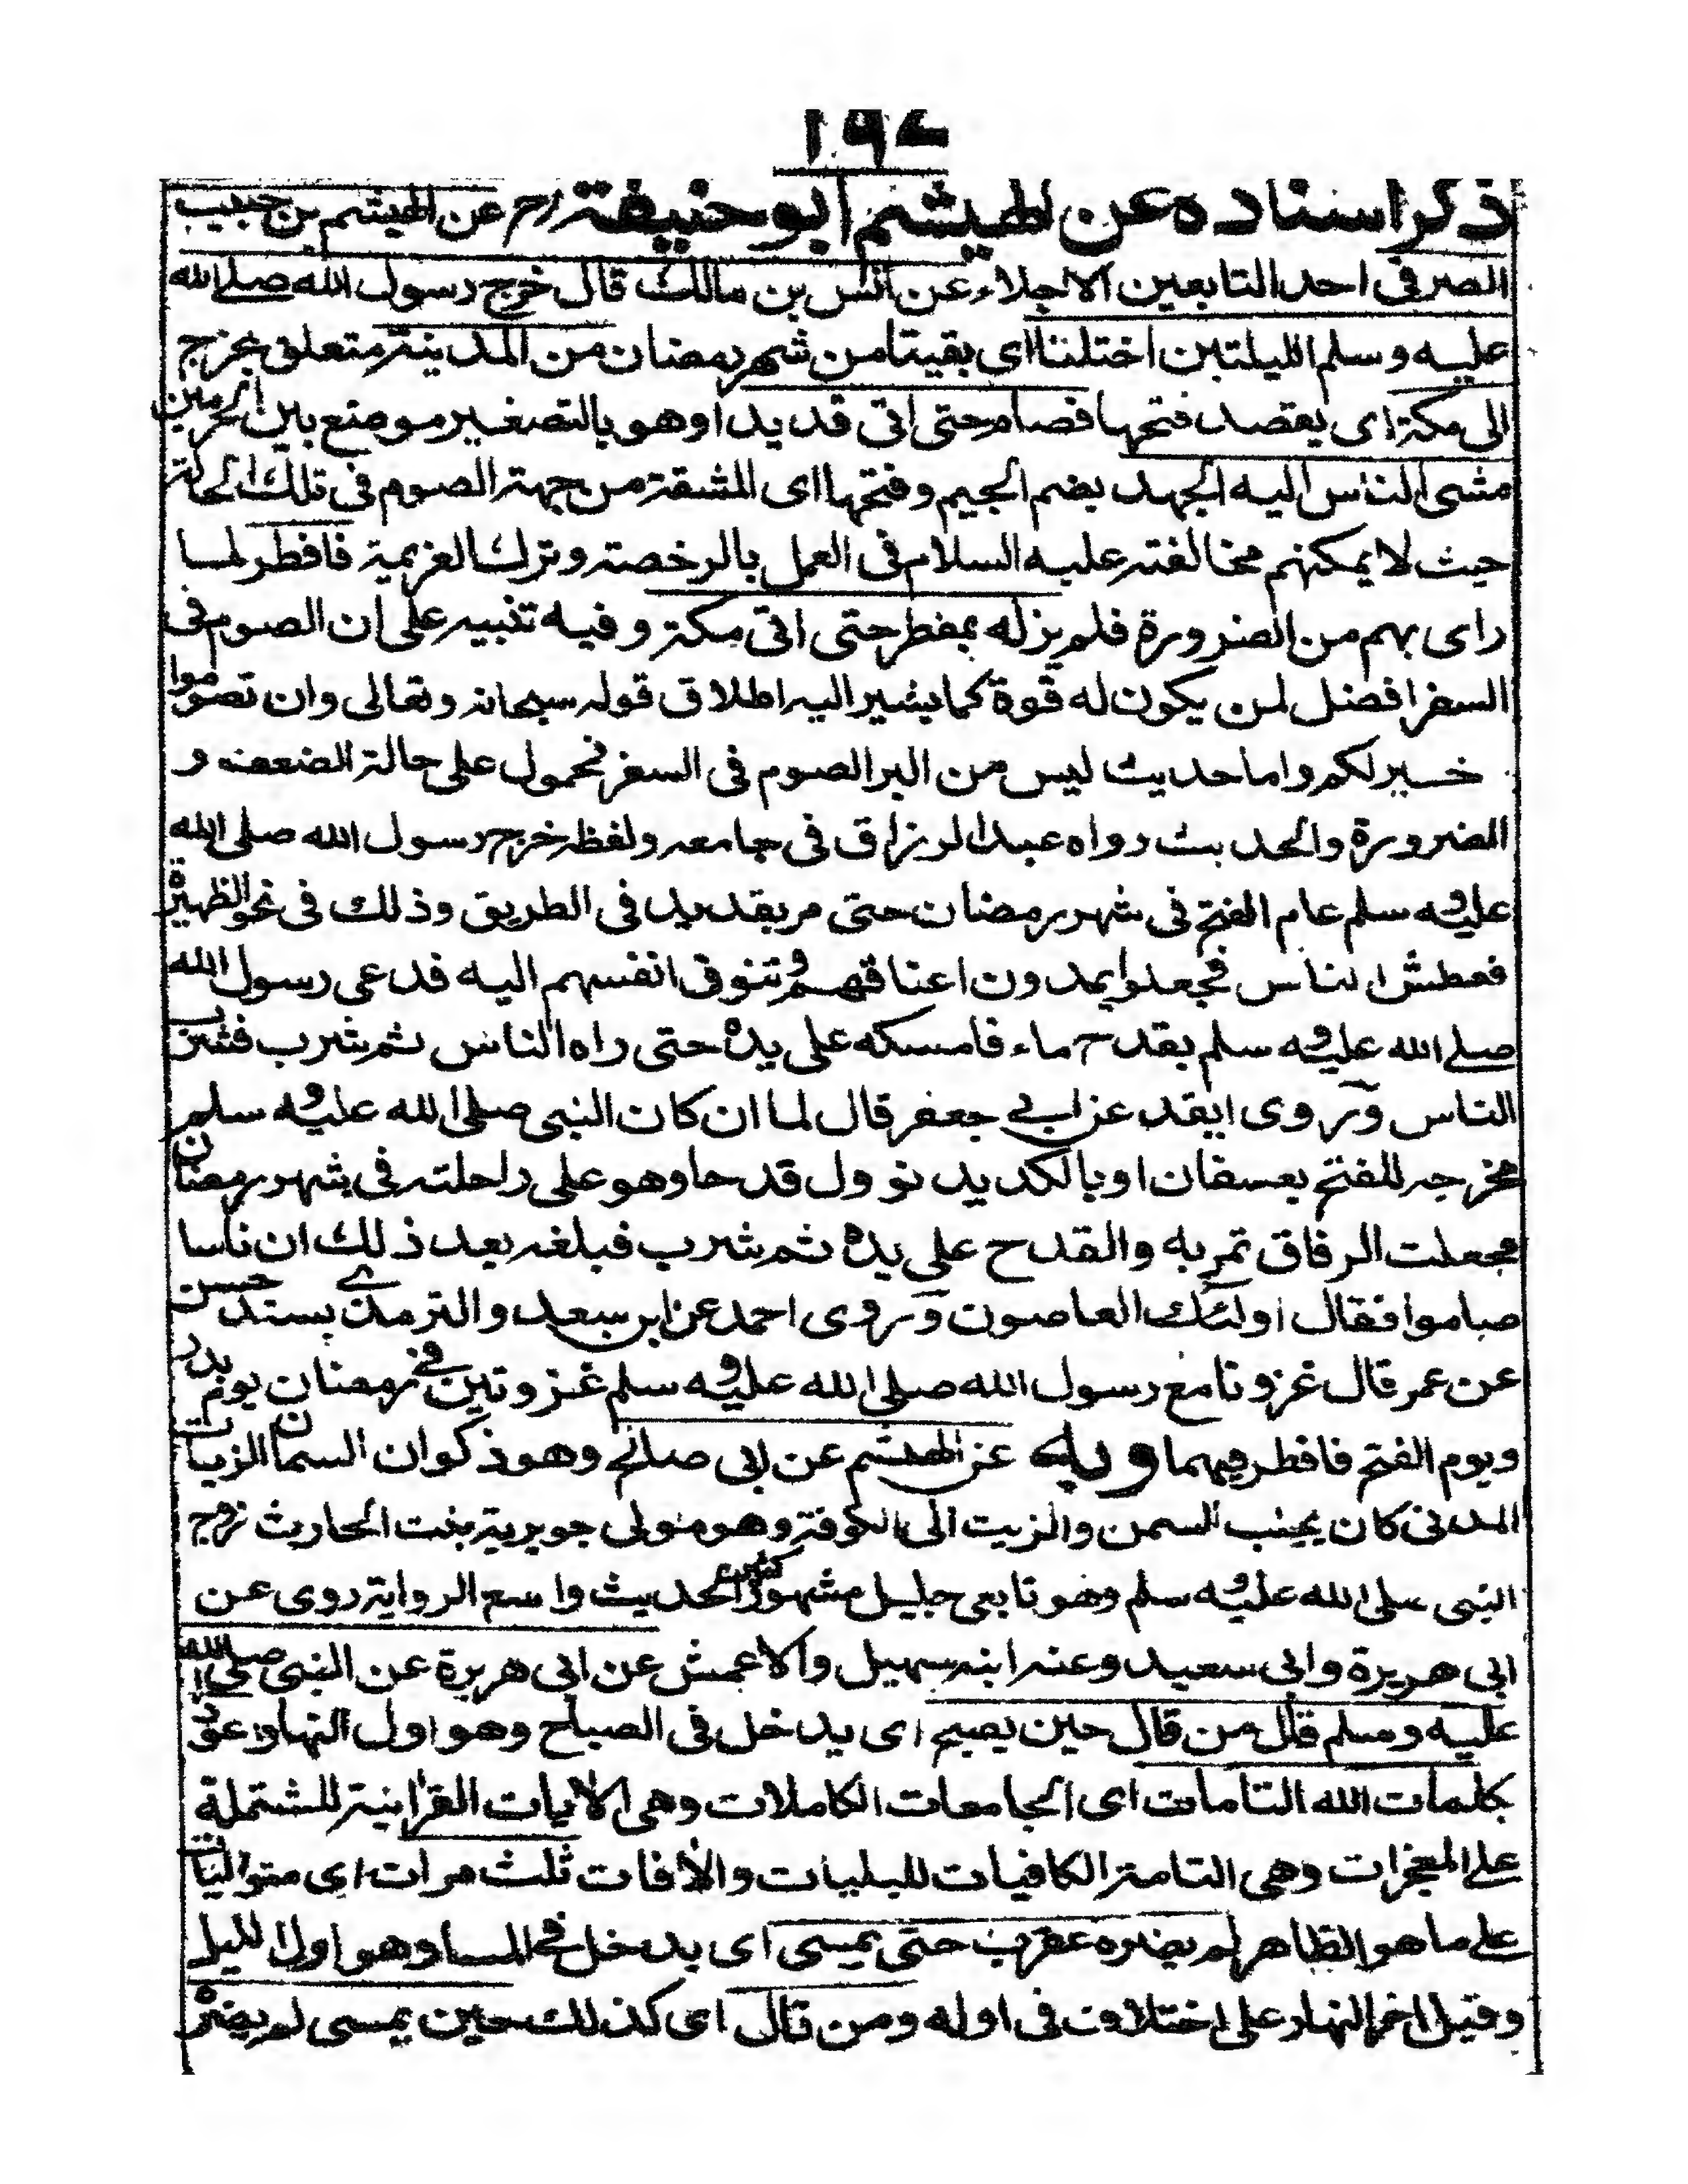 ١٩٤
ذكر اسناده عن الهيثم ابو حنيفة رح عن الهيثم بن حبيب
الصرفى احد التابعين الاجلاء عن انس بن مالك قال خرج رسول الله صلى الله
عليه وسلم الليلتين اختلنا اى بقيتا من شهر رمضان من المدينة متعلق بخرج
الى مكة اى يقصد فتحها فصام حتى اتى قديدا وهو بالتصغير موضع بين الحرمين
مشى الناس اليه الجهد بضم الجيم وفتحها اى المشقة من جهة الصوم فى تلك الحالة
حيث لا يمكنهم مخالفته عليه السلام فى العمل بالرخصة وترك العزيمة فافطر لما
راى بهم من الضرورة فلم يزله بمفطر حتى اتى مكة وفيه تنبيه على ان الصوم فى
السفر افضل لمن يكون له قوة كما يشير اليه اطلاق قوله سبحانه وتعالى وان تصوموا
خير لكم واما حديث ليس من البر الصوم فى السفر فحمول على حالة الضعف و
الضرورة والحديث رواه عبد الرزاق فى جامعه ولفظه خرج رسول الله صلى الله
عليه وسلم عام الفتح فى شهر رمضان حتى مر بقديد فى الطريق وذلك فى نحو الظهيرة
فعطش الناس فجعلوا يمدون اعناقهم وتتوق انفسهم اليه فدعى رسول الله
صلى الله عليه وسلم بقدح ماء فامسكه على يده حتى راه الناس ثم شرب فشرب
الناس وروى ايقد عن ابى جعفر قال لما ان كان النبى صلى الله عليه وسلم
مخرجه للفتح بعسفان او بالكديد نوول قدحا وهو على راحلته فى شهر رمضان
فجعلت الرفاق تمر به والقدح على يده ثم شرب فبلغه بعد ذلك ان ناسا
صاموا فقال اولئك العاصون وروى احمد عن ابن سعد والترمذى بسند حسن
عن عمر قال غزونا مع رسول الله صلى الله عليه وسلم غزوتين فى رمضان يوم بدر
ويوم الفتح فافطر فيهما وبه عن الهيثم عن ابى صالح وهو ذكوان السمان الزيات
المدنى كان يجلب السمن والزيت الى الكوفة وهو مولى جويرية بنت الحارث زوج
النبى صلى الله عليه وسلم وهو تابعى جليل مشهور كثير الحديث واسع الرواية روى عن
ابى هريرة وابى سعيد وعنه ابنه سهيل والاعمش عن ابى هريرة عن النبى صلى الله
عليه وسلم قال من قال حين يصبح اى يدخل فى الصباح وهو اول النهار اعوذ
بكلمات الله التامات اى الجامعات الكاملات وهى الآيات القرآنية للشتملة
على المعجزات وهى التامة الكافيات للبليات والآفات ثلث مرات اى متواليات
على ما هو الظاهر لم يضره عقرب حتى يمسى اى يدخل فى المسا وهو اول الليل
وقيل اخر النهار على اختلاف فى اوله ومن قال اى كذلك حين يمسى لم يضره